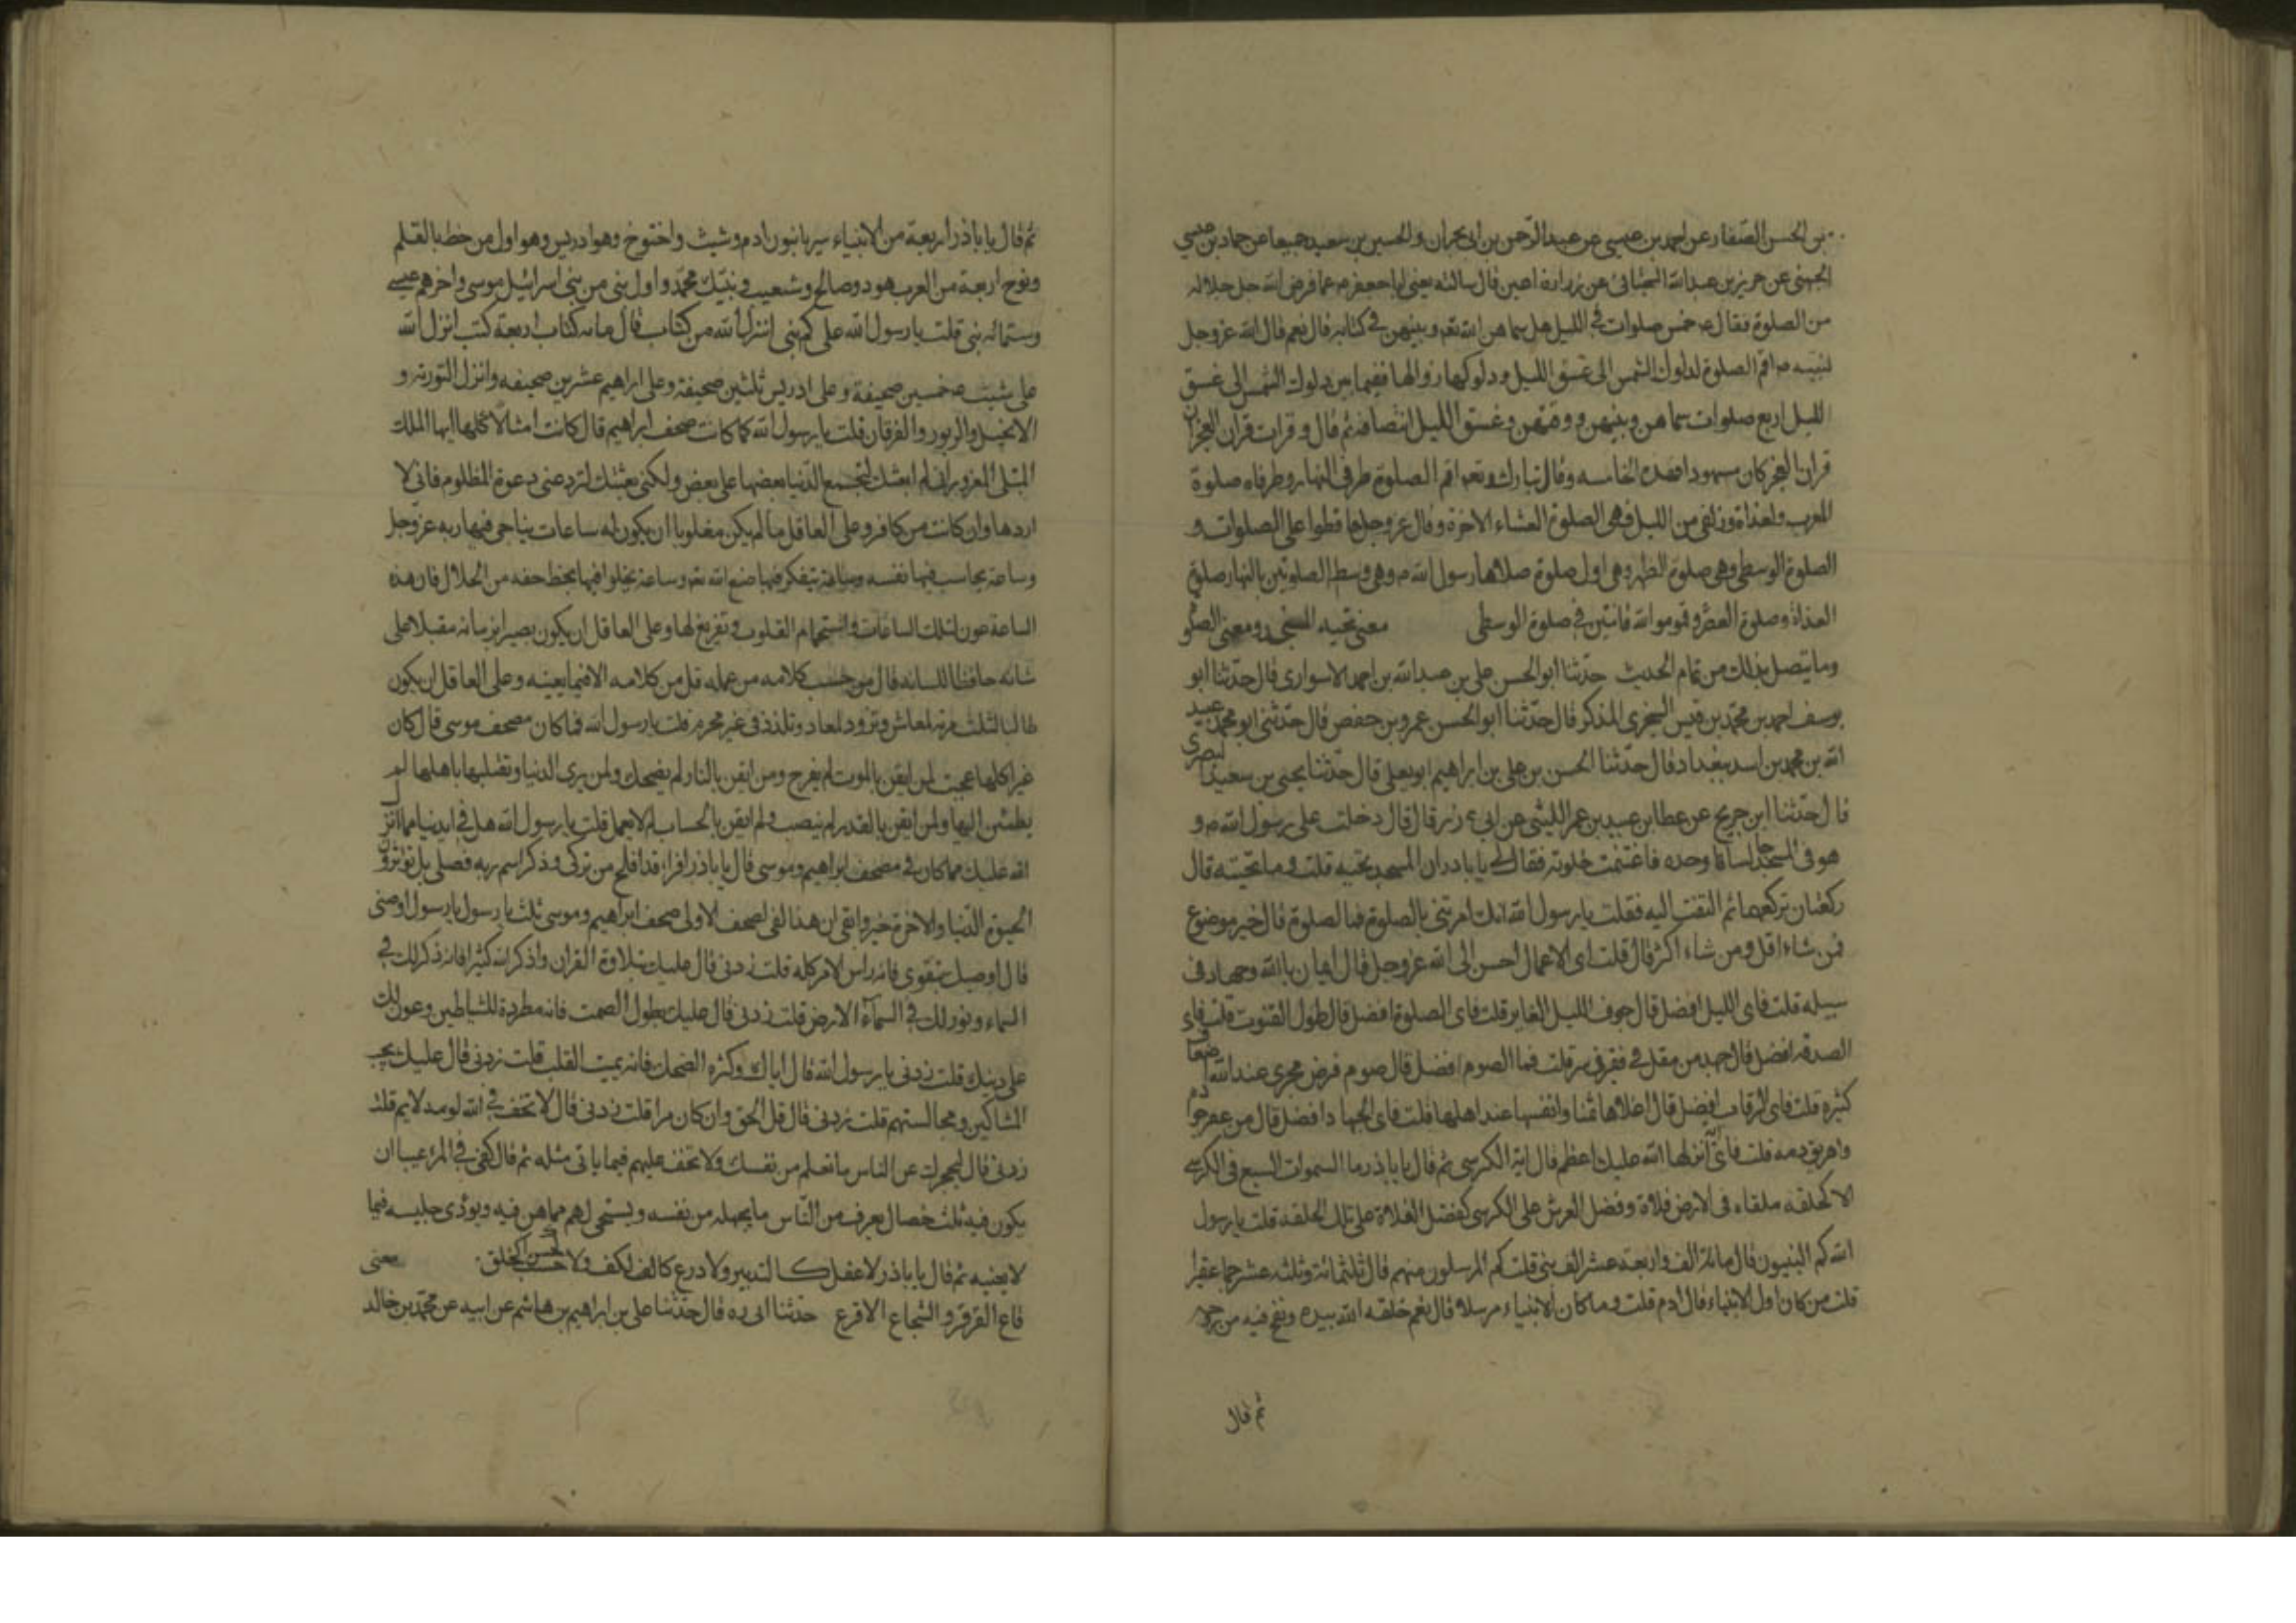 بن الحسن الصفار عن احمد بن عيسى عن عبد الرحمن بن ابى نجران والحسين بن سعيد جميعا عن حماد بن عيسى
الجهنى عن حريز بن عبد الله السجستانى عن زرارة اعين قال سالته يعنى ابا جعفر ع عما فرض الله جل جلاله
من الصلوة فقال ع خمس صلوات فى الليل هل سماهن الله تع وبينهن فى كتابه قال نعم قال الله عزوجل
لنبيه ص اقم الصلوة لدلوك الشمس الى غسق الليل ودلوكها زوالها ففيما بين دلوك الشمس الى غسق
الليل اربع صلوات سماهن وبينهن ووقتهن وغسق الليل انتصافه ثم قال وقرات قران الفجر ان
قران الفجر كان مشهودا فهذه الخامسه وقال تبارك وتع اقم الصلوة طرفى النهار وطرفاه صلوة
المغرب ولغداة وزلفى من الليل فهى الصلوة العشاء الاخرة وقال عزوجل حافظوا على الصلوات و
الصلوة الوسطى وهى صلوة الظهر وهى اول صلوة صلاها رسول الله ص وهى وسط الصلوتين بالنهار صلوة
الغداة وصلوة العصر وقوموا لله قانتين فى صلوة الوسطى معنى تحيه المسجد ومعنى الصلو
وما يتصل بذلك من تمام الحديث حدثنا ابو الحسن على بن عبد الله بن احمد الاسوارى قال حدثنا ابو
يوسف احمد بن محمد بن قيس السجزى المذكر قال حدثنا ابو الحسن عمرو بن حفص قال حدثنى ابو محمد عبيد
الله بن محمد بن اسد ببغداد قال حدثنا الحسن بن على بن ابراهيم ابو يعلى قال حدثنا يحيى بن سعيد البصرى
قال حدثنا ابن جريج عن عطا بن عبيد بن عمر الليثى عن ابى ذر قال قال دخلت على رسول الله ص و
هو فى المسجد جالسا وحده فاغتنمت خلوته فقال لى يا باذر ان المسجد تحيه قلت وما تحيته قال
ركعتان تركعهما ثم التفت اليه فقلت يا رسول الله انك امرتنى بالصلوة فما الصلوة قال خير موضوع
فمن شاء اقل ومن شاء اكثر قال قلت اى الاعمال احسن الى الله عزوجل قال ايمان بالله وجهاد فى
سبيله قلت فاى الليل افضل قال جوف الليل الغابر قلت فاى الصلوة افضل قال طول القنوت قلت فاى
الصدقه افضل قال جهد من مقل فى فقر فى سر قلت فما الصوم افضل قال صوم فرض مجزى عند الله اضعافا
كثيره قلت فاى الرقاب افضل قال اغلاها ثمنا وانفسها عند اهلها قلت فاى الجهاد افضل قال من عقر جواده
واهريق دمه قلت فاى انزلها الله عليك اعظم قال اية الكرسى ثم قال يا باذر ما السموات السبع فى الكرسى
الا كحلقه ملقاه فى الارض فلاة وفضل العرش على الكرسى كفضل الفلاة على تلك الحلقه قلت يا رسول
الله كم النبيون قال مائة الف واربعة عشر الف نبى قلت كم المرسلون منهم قال ثلثمائة وثلثه عشر جما غفيرا
قلت من كان اول الانبياء قال ادم قلت وما كان الانبياء مرسلا قال نعم خلقه الله بيده ونفخ فيه من روحه
ثم قال
ثم قال يا باذر اربعة من الانبياء سريانيون ادم وشيث واخنوخ وهو ادريس وهو اول من خط بالقلم
ونوح اربعة من العرب هود وصالح وشعيب ونبيك محمد واول نبى من بنى اسرائيل موسى واخرهم عيسى
وستمائه نبى قلت يا رسول الله على كم نبى انزل الله من كتاب قال مائه كتاب اربعة كتب انزل الله
على شيث ع خمسين صحيفة وعلى ادريس ثلثين صحيفة وعلى ابراهيم عشرين صحيفه وانزل التورته و
الانجيل والزبور والفرقان قلت يا رسول الله كما كانت صحف ابراهيم قال كانت امثالا كلها ايها الملك
المبتلى المغرور انى لم ابعثك لتجمع الدنيا بعضها على بعض ولكنى بعثتك لترد عنى دعوة المظلوم فانى لا
اردها وان كانت من كافر وعلى العاقل ما لم يكن مغلوبا ان يكون له ساعات يناجى فيها ربه عزوجل
وساعة يحاسب فيها نفسه وساعة يتفكر فيها صنع الله تع وساعة يخلوا فيها بحظ حفه من الحلال فان هذه
الساعة عون لتلك الساعات واستجمام القلوب وتفريغ لها وعلى العاقل ان يكون بصيرا بزمانه مقبلا على
شانه حافظا للسانه قال من حسب كلامه من عمله قل من كلامه الا فيما يعينه وعلى العاقل ان يكون
طالبا لثلث مرمة لمعاش وتزود لمعاد وتلذذ فى غير محرم قلت يا رسول الله فما كان صحف موسى قال كان
غير اكلها عجبت لمن ايقن بالموت لم يفرح ومن ايقن بالنار لم يضحك ولمن يرى الدنيا وتقلبها باهلها لم
يطمئن اليها ولمن ايقن بالقدر لم ينصب ولم ايقن بالحساب لم لا يعمل قلت يا رسول الله هل فى ايدينا مما انزل
الله عليك مما كان فى صحف ابراهيم وموسى قال يا باذر اقرا قد افلح من تزكى وذكر اسم ربه فصلى بل تؤثرون
الحيوة الدنيا والاخرة خير وابقى ان هذا لفى لصحف الاولى صحف ابراهيم وموسى قلت يا رسول يا رسول اوصنى
قال اوصيك بتقوى فانه راس الامر كله قلت زدنى قال عليك بتلاوة القران واذكر الله كثيرا فانه ذكر لك فى
السماء ونور لك فى السماء الارض قلت زدنى قال عليك بطول الصمت فانه مطردة للشياطين وعون لك
على دينك قلت زدنى يا رسول الله قال اياك وكثره الضحك فانه يميت القلب قلت زدنى قال عليك بحب
المساكين ومجالستهم قلت زدنى قال قل الحق وان كان مرا قلت زدنى قال لا تخف فى الله لومه لايم قلت
زدنى قال ليحجزك عن الناس ما تعلم من نفسك ولا تخف عليهم فيما ياتى مثله ثم قال كفى فى المرء عيبا ان
يكون فيه ثلث خصال يعرف من الناس ما يجهله من نفسه ويستحى لهم مما هن فيه ويوذى جليسه فيما
لا يعنيه ثم قال يا باذر لا عقل كالتدبير ولا درع كالف لكف ولا حسب كحسن الخلق معنى
قاع القرقر والشجاع الاقرع حدثنا ابى ره قال حدثنا على بن ابراهيم بن هاشم عن ابيه عن محمد بن خالد